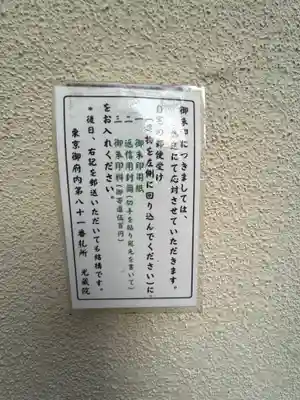 御朱印につきましては、
郵送にて応対させていただきます。
D室の郵便受け
(建物を左側に回り込んでください)に、
一 御朱印用紙
二 返信用封筒(切手を貼り宛先を書いて)
三 御朱印料(御寄進伍百円)
をお入れください。
*後日、右記を郵送いただいても結構です。
東京御府内第八十一番札所 光蔵院